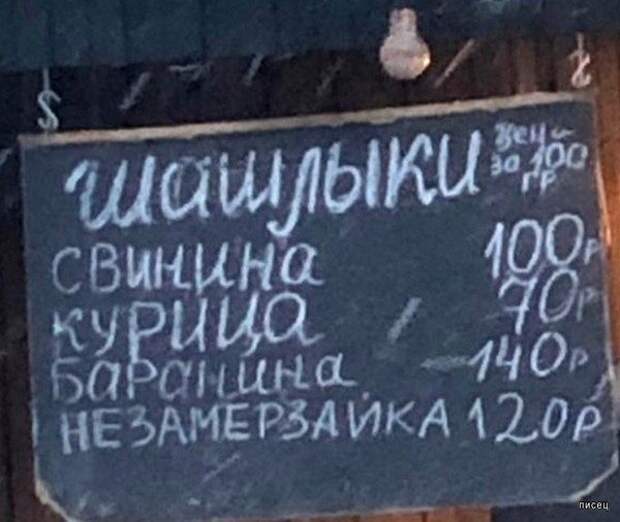 шашлыки цена за 100 гр
свинина 100р
курица 70р
баранина 140р
НЕЗАМЕРЗАЙКА 120р
писец